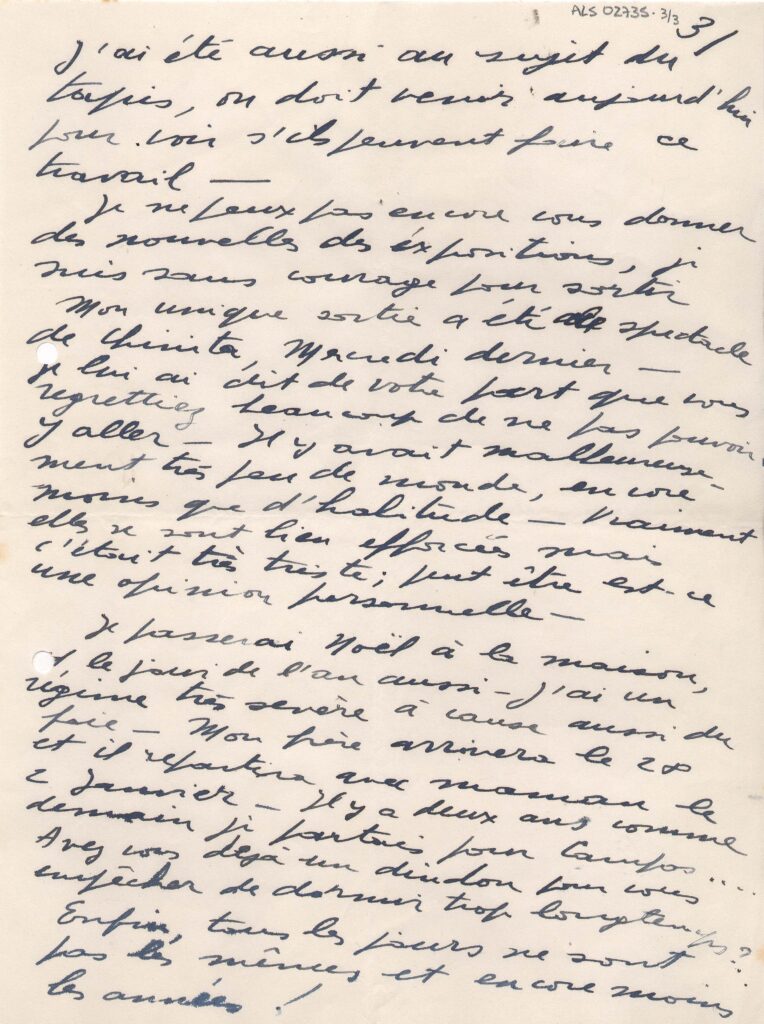 ALS 02735-3/3
3/
J'ai été aussi au sujet du
tapis, on doit venir aujourd'hui
pour voir s'ils peuvent faire ce
travail —
Je ne peux pas encore vous donner
des nouvelles des expositions, je
suis sans courage pour sortir
Mon unique sortie a été spectacle
de Chinita, Mercredi dernier —
je lui ai dit de votre part que vous
regrettiez beaucoup de ne pas pouvoir
y aller — Il y avait malheureuse-
ment très peu de monde, encore
moins que d'habitude — Vraiment
elles se sont bien efforcées mais
c'était très triste; peut être est-ce
une opinion personnelle —
Je passerai Noël à la maison,
et le jour de l'an aussi — J'ai un
régime très sevère à cause aussi du
foie — Mon frère arrivera le 28
et il repartira avec maman le
2 Janvier — Il y a deux ans comme
demain je partais pour Campos....
Avez vous dejà un dindon pour vous
empêcher de dormir trop longtemps??
Enfin, tous les jours ne sont
pas les mêmes et encore moins
les années !